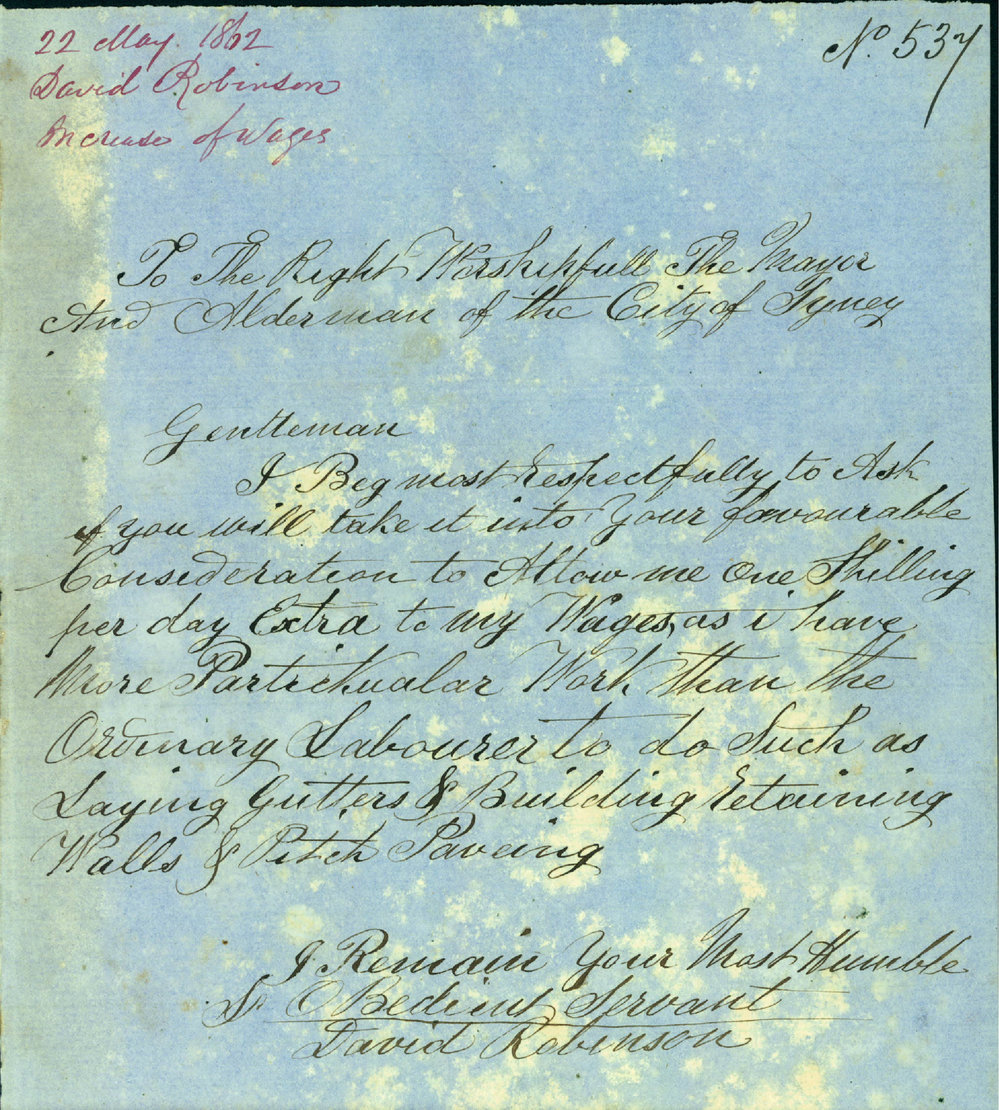 22 May. 1862
David Robinson
Increase of Wages
No. 537
To The Right Worshipfull The Mayor
And Alderman of the City of Syney
Gentleman
I Beg most respectfully to Ask
if you will take it into Your favourable
Consideration to Allow me One Shilling
per day Extra to my Wages, as i have
More Partickualar Work than the
Ordinary Labourer to do Such as
Laying Gutters & Building retaining
Walls & Pitch Paveing
I Remain Your Most Humble
& OBedient Servant
David Robinson